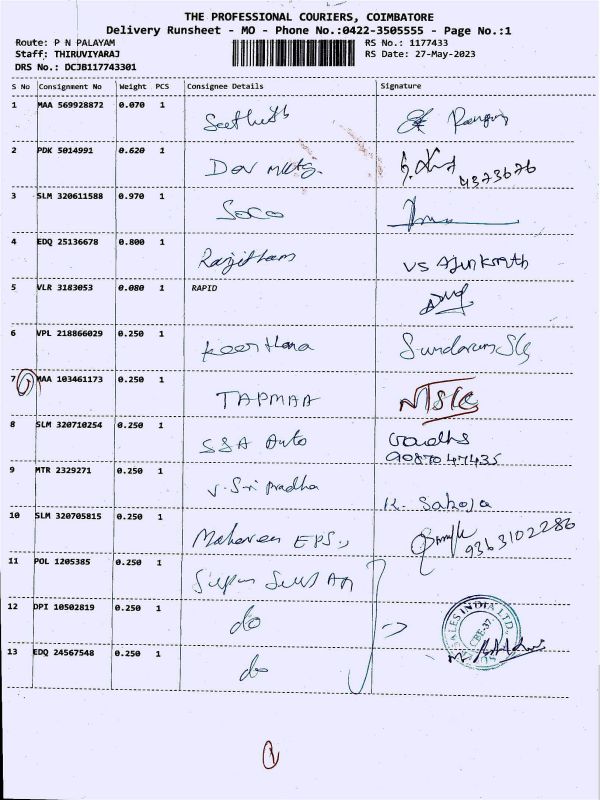 THE PROFESSIONAL COURIERS, COIMBATORE
Delivery Runsheet - MO - Phone No.:0422-3505555 - Page No.:1
Route: P N PALAYAM RS No.: 1177433
Staff: THIRUVIYARAJ RS Date: 27-May-2023
DRS No.: DCJB117743301
S No Consignment No Weight PCS Consignee Details Signature
1 MAA 569928872 0.070 1
2 PDK 5014991 0.620 1 Dev
3 SLM 320611588 0.970 1 Soco
4 EDQ 25136678 0.800 1 Ranjitham VS
5 VLR 3183053 0.080 1 RAPID
6 VPL 218866029 0.250 1 Keerthana Sundaram
7 MAA 103461173 0.250 1 TAPMAA
8 SLM 320710254 0.250 1 SSA Auto
9087047435
9 MTR 2329271 0.250 1 V. Sri pradha
10 SLM 320705815 0.250 1 EPS 9363102286
11 POL 1205385 0.250 1 Super
12 DPI 10502819 0.250 1 do
SALES INDIA LTD.
CBE-37
13 EDQ 24567548 0.250 1 do
1